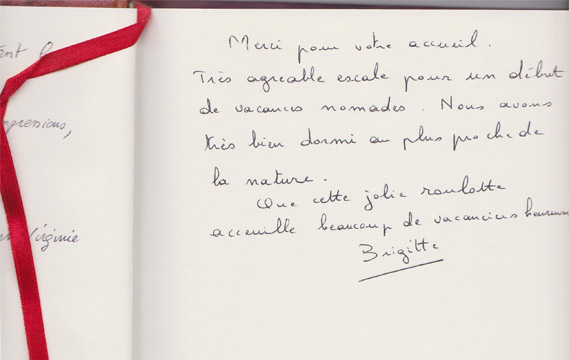 Merci pour votre accueil.
Très agréable escale pour un début
de vacances nomades. Nous avons
très bien dormi au plus proche de
la nature.
Que cette jolie roulotte
acceuille beaucoup de vacanciers heureux
Brigitte
Virginie